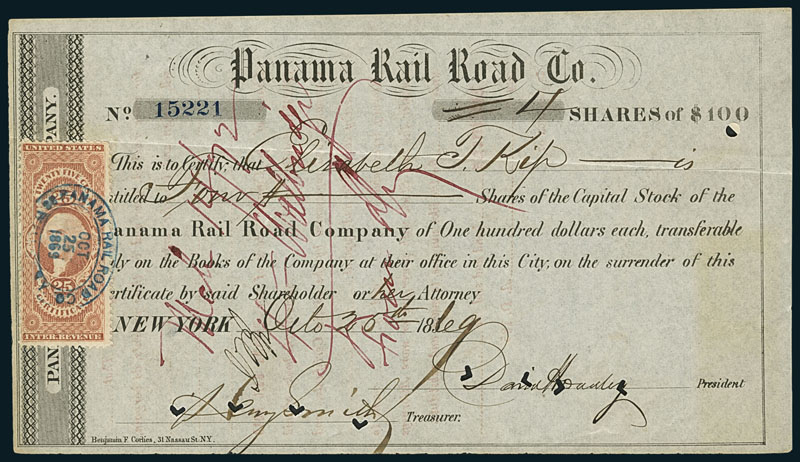 Panama Rail Road Co.
No. 15221 4 SHARES of $100
This is to Certify, that Elisabeth T. Kip is
titled to Four Shares of the Capital Stock of the
anama Rail Road Company of One hundred dollars each, transferable
ly on the Books of the Company at their office in this City, on the surrender of this
ertificate by said Shareholder or her Attorney
NEW YORK Octo 25th 1869
David Hoadley President
Treasurer.
Benjamin F. Corlies, 31 Nassau St. N.Y.
PANY.
PAN
UNITED STATES
TWENTY FIVE
25
CERTIFICATE
INTER. REVENUE
PANAMA RAIL ROAD Co.
OCT
25
1869